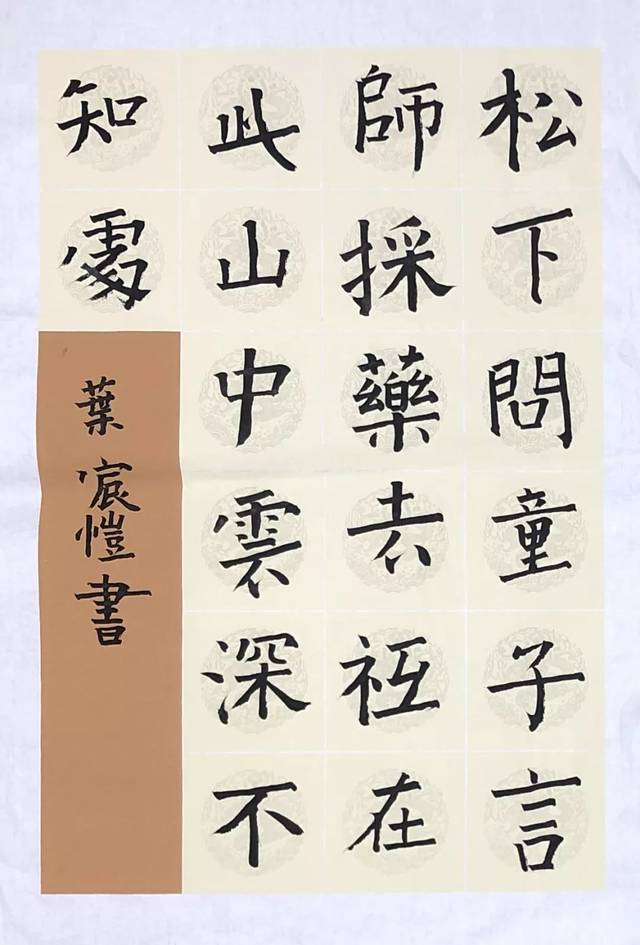 松下問童子言
師採藥去祗在
此山中雲深不
知處
葉宸愷書